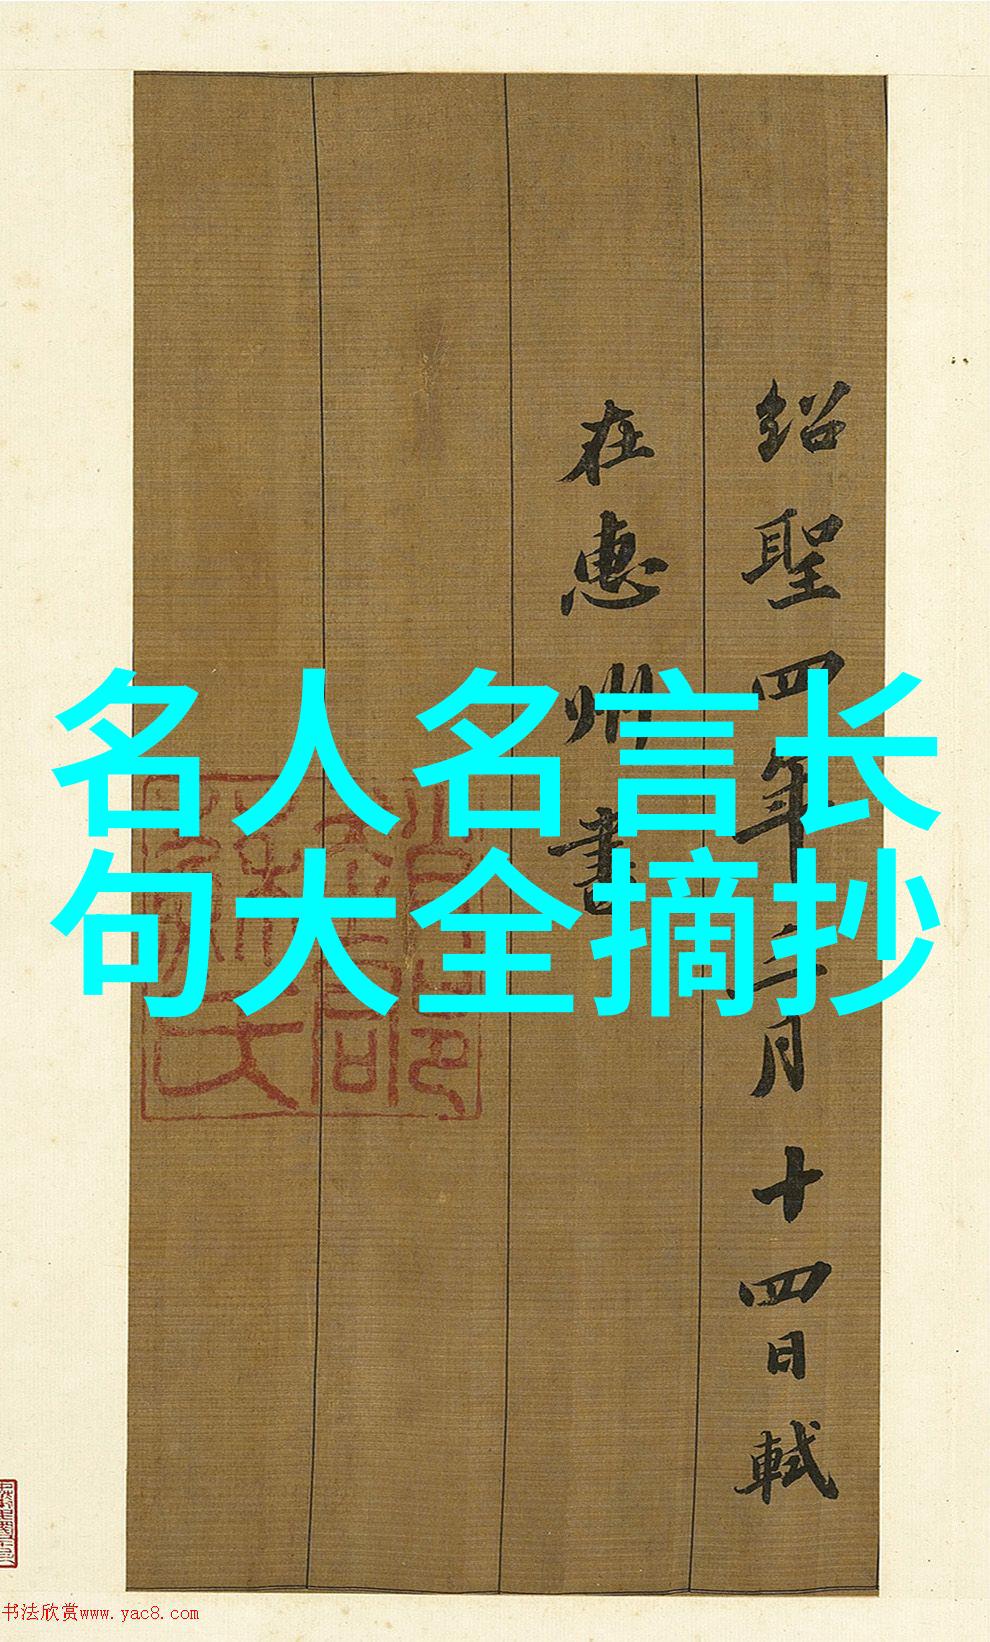 名人名言长
句大全摘抄
紹聖四年二月十四日軾
在惠州書
书法欣赏www.yac8.com